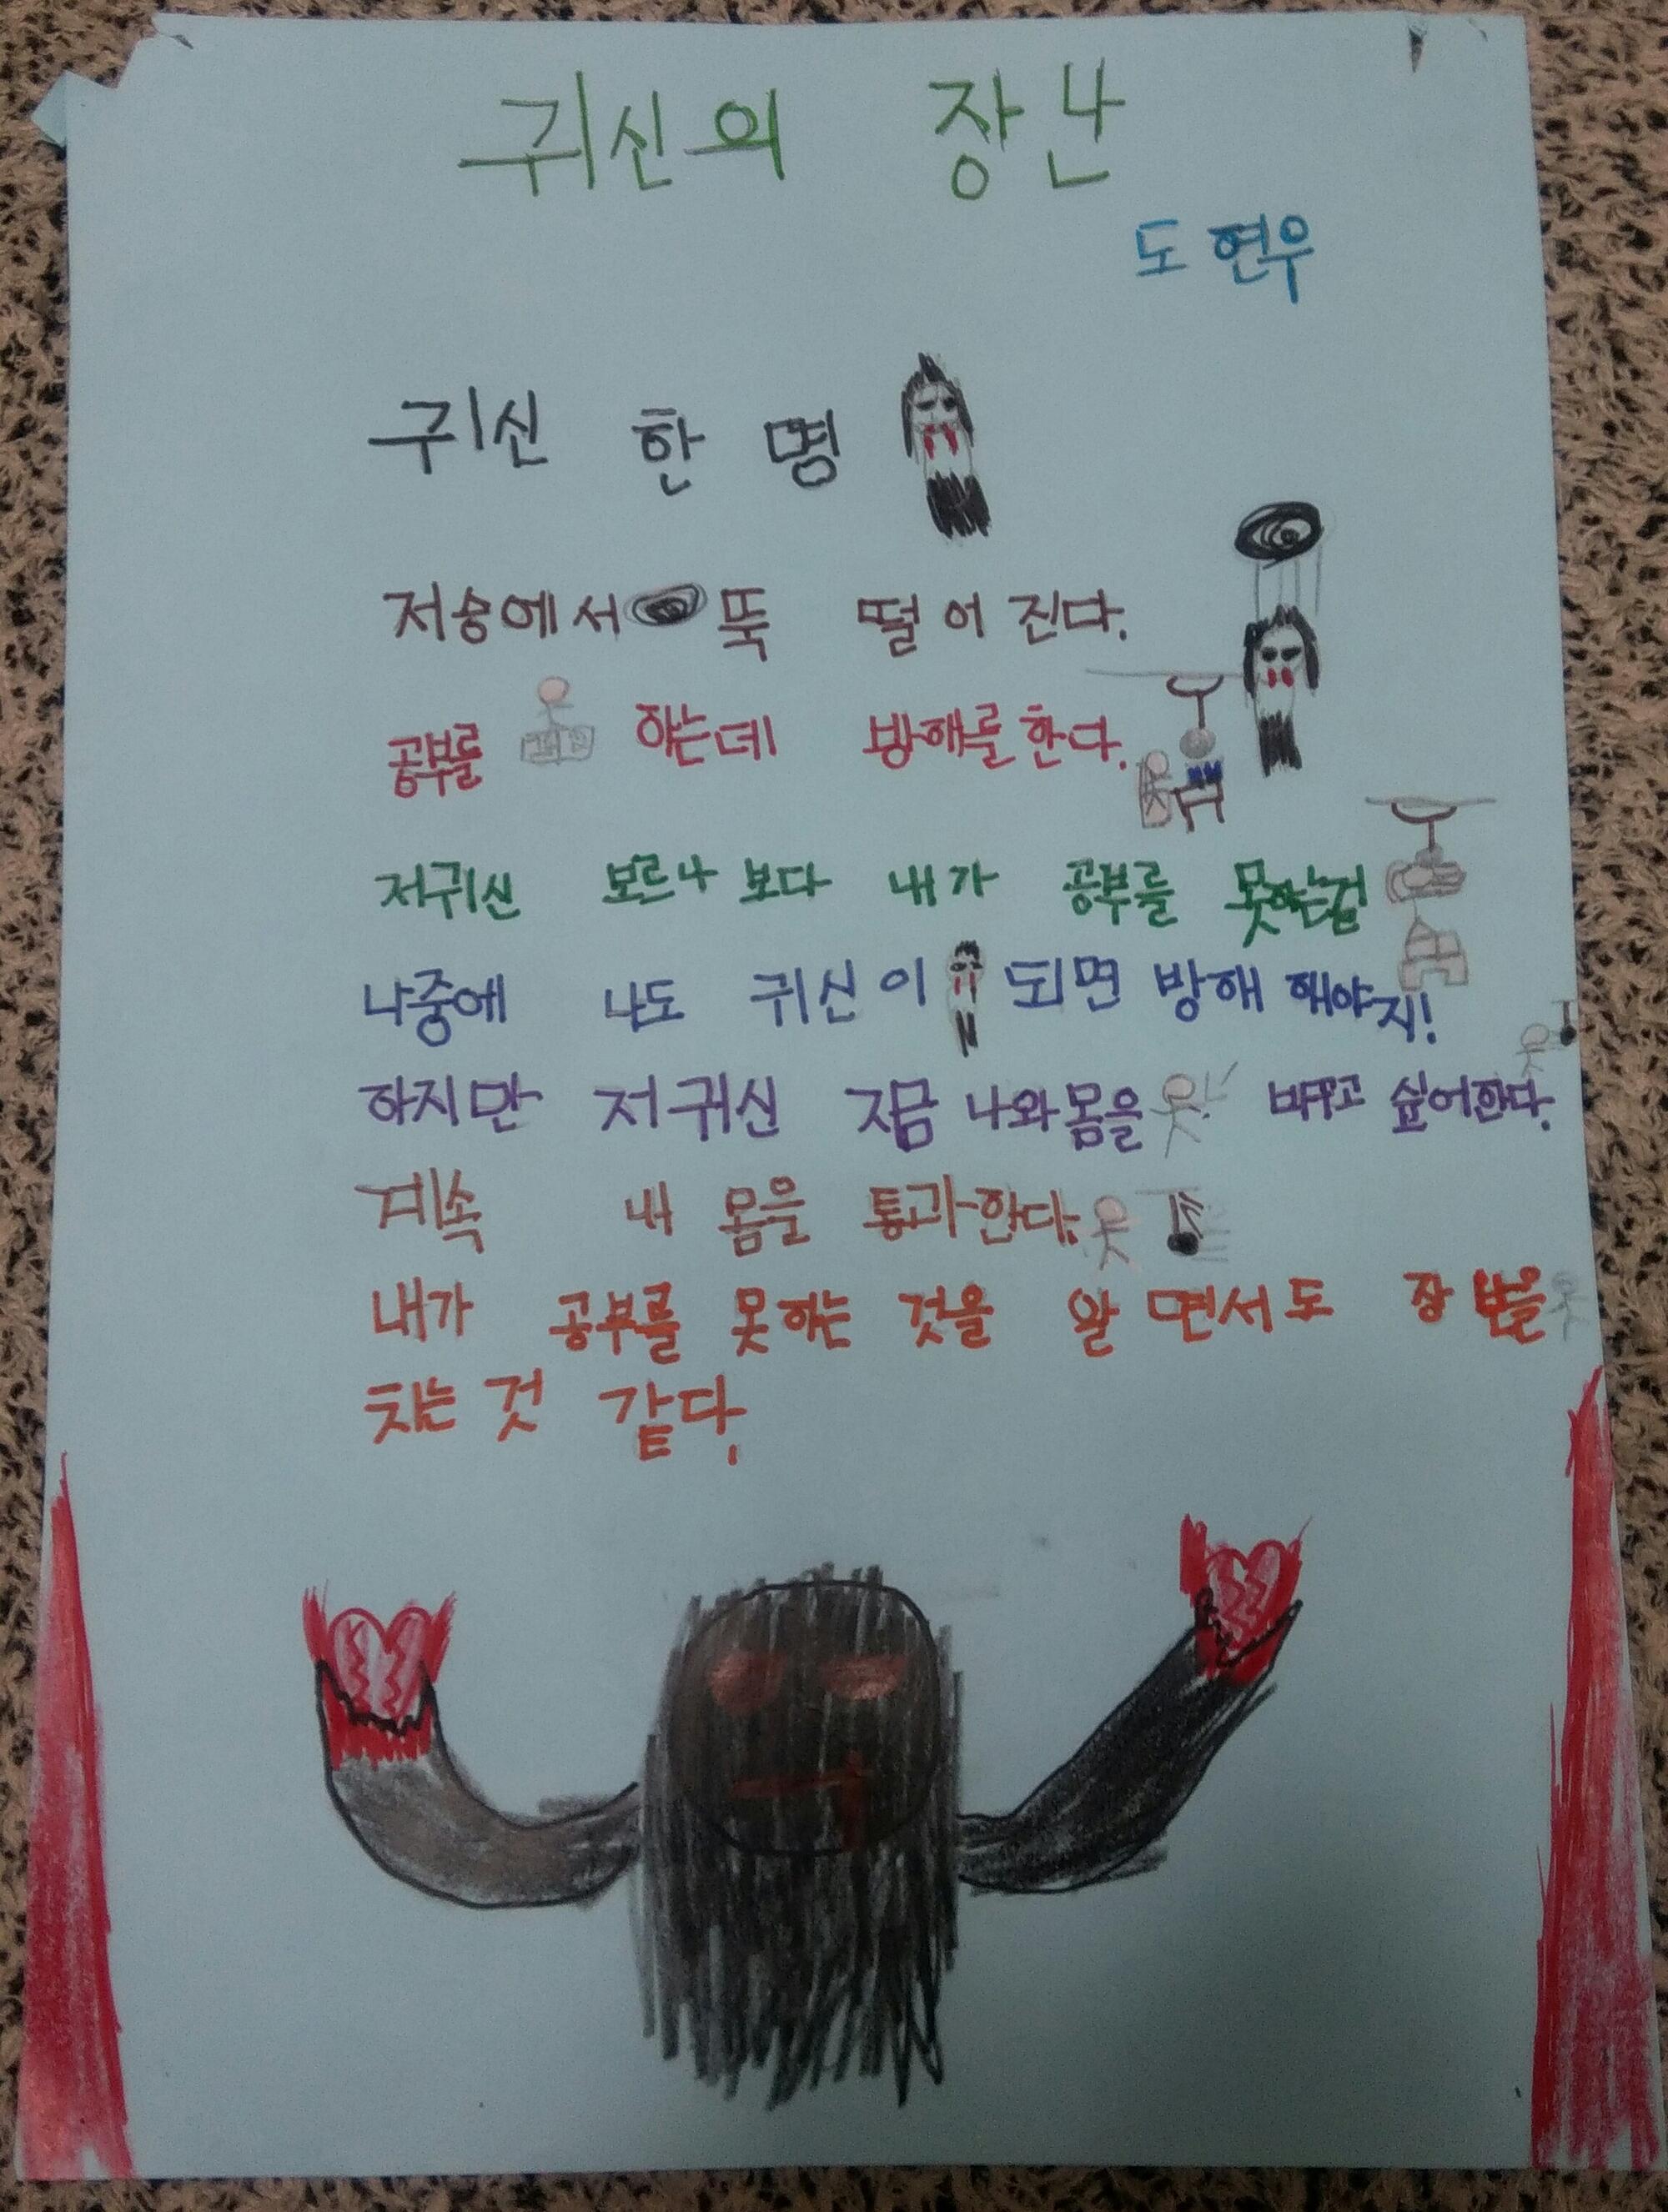 귀신의 장난
도현우
귀신 한 명
저승에서 뚝 떨어진다.
공부를 하는데 방해를한다.
저귀신 모르나 보다 내가 공부를 못하는걸
나중에 나도 귀신이 되면 방해 해야지!
하지만 저귀신 지금 나와몸을 바꾸고 싶어한다.
계속 내 몸을 통과한다.
내가 공부를 못하는 것을 알면서도 장난을
치는 것 같다.